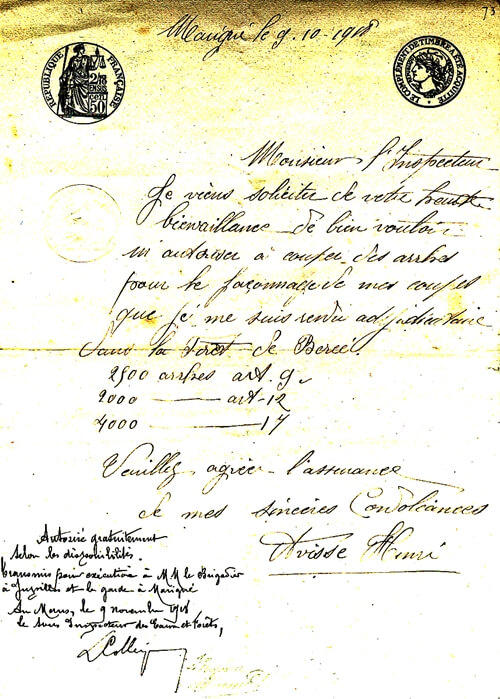 73
Marigné le 9.10.1918
RÉPUBLIQUE FRANÇAISE
2 50
LE COMPLÉMENT DE TIMBRE A ÉTÉ ACQUITTÉ
Monsieur l'Inspecteur
Je viens solicite de votre haute
bienvaillance de bien vouloir
m'autoriser à couper des arbres
pour le façonnage de mes coupes
que je me suis rendu adjudicataire
dans la Forêt de Bercé.
2500 arbres art. 9
2000 — art-12
4000 — 17
Veuillez agréer l'assurance
de mes sincères Condoléances
Avisse Henri
Autorisé gratuitement
selon les disponibilités.
Transmis pour exécution à MM le Brigadier
à Jupilles et le garde à Marigné
Au Mans, le 9 novembre 1918
le Sous Inspecteur des Eaux et Forêts,